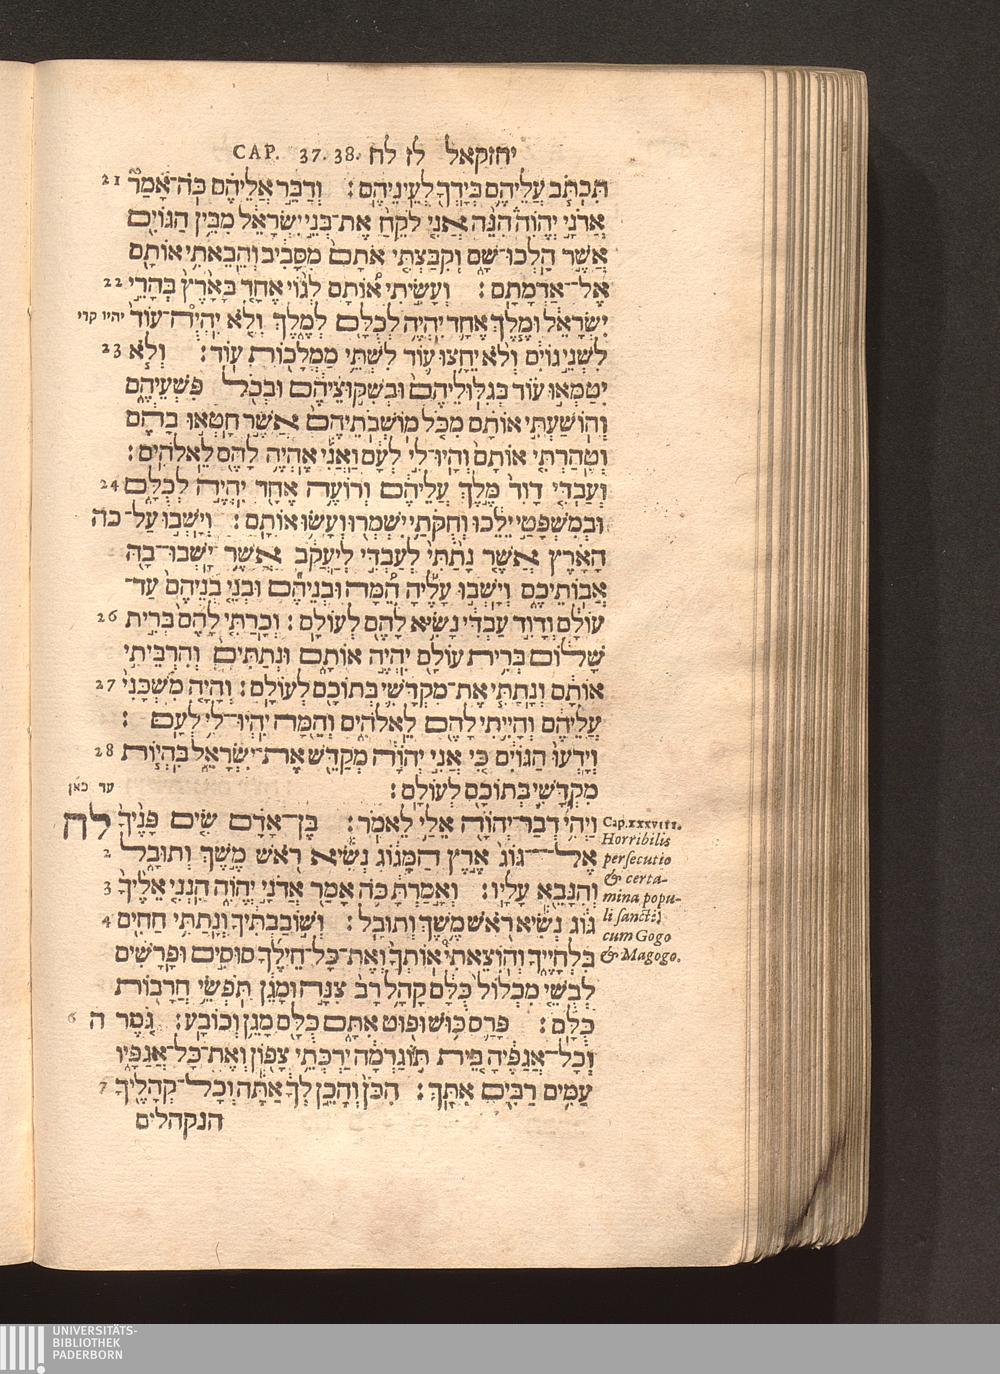 CAP. 37. 38. יחזקאל לז לח
תִּכְתֹּב עֲלֵיהֶם בְּיָדְךָ לְעֵינֵיהֶם: וְדַבֵּר אֲלֵיהֶם כֹּה־אָמַר 21
אֲדֹנָי יְהֹוִה הִנֵּה אֲנִי לֹקֵחַ אֶת־בְּנֵי יִשְׂרָאֵל מִבֵּין הַגּוֹיִם
אֲשֶׁר הָלְכוּ־שָׁם וְקִבַּצְתִּי אֹתָם מִסָּבִיב וְהֵבֵאתִי אוֹתָם
אֶל־אַדְמָתָם: וְעָשִׂיתִי אוֹתָם לְגוֹי אֶחָד בָּאָרֶץ בְּהָרֵי 22
יִשְׂרָאֵל וּמֶלֶךְ אֶחָד יִהְיֶה לְכֻלָּם לְמֶלֶךְ וְלֹא יִהְיֶה־עוֹד יהיו קרי
לִשְׁנֵי גוֹיִם וְלֹא יֵחָצוּ עוֹד לִשְׁתֵּי מַמְלָכוֹת עוֹד: וְלֹא 23
יִטַּמְּאוּ עוֹד בְּגִלּוּלֵיהֶם וּבְשִׁקּוּצֵיהֶם וּבְכֹל פִּשְׁעֵיהֶם
וְהוֹשַׁעְתִּי אוֹתָם מִכֹּל מוֹשְׁבֹתֵיהֶם אֲשֶׁר חָטְאוּ בָהֶם
וְטִהַרְתִּי אוֹתָם וְהָיוּ־לִי לְעָם וַאֲנִי אֶהְיֶה לָהֶם לֵאלֹהִים:
וְעַבְדִּי דָוִד מֶלֶךְ עֲלֵיהֶם וְרוֹעֶה אֶחָד יִהְיֶה לְכֻלָּם 24
וּבְמִשְׁפָּטַי יֵלֵכוּ וְחֻקֹּתַי יִשְׁמְרוּ וְעָשׂוּ אוֹתָם: וְיָשְׁבוּ עַל־ כה
הָאָרֶץ אֲשֶׁר נָתַתִּי לְעַבְדִּי לְיַעֲקֹב אֲשֶׁר יָשְׁבוּ־בָהּ
אֲבוֹתֵיכֶם וְיָשְׁבוּ עָלֶיהָ הֵמָּה וּבְנֵיהֶם וּבְנֵי בְנֵיהֶם עַד־
עוֹלָם וְדָוִד עַבְדִּי נָשִׂיא לָהֶם לְעוֹלָם: וְכָרַתִּי לָהֶם בְּרִית 26
שָׁלוֹם בְּרִית עוֹלָם יִהְיֶה אוֹתָם וּנְתַתִּים וְהִרְבֵּיתִי
אוֹתָם וְנָתַתִּי אֶת־מִקְדָּשִׁי בְּתוֹכָם לְעוֹלָם: וְהָיָה מִשְׁכָּנִי 27
עֲלֵיהֶם וְהָיִיתִי לָהֶם לֵאלֹהִים וְהֵמָּה יִהְיוּ־לִי לְעָם:
וְיָדְעוּ הַגּוֹיִם כִּי אֲנִי יְהוָֹה מְקַדֵּשׁ אֶת־יִשְׂרָאֵל בִּהְיוֹת 28
מִקְדָּשִׁי בְּתוֹכָם לְעוֹלָם: עד כאן
וַיְהִי דְבַר־יְהוָֹה אֵלַי לֵאמֹר: בֶּן־אָדָם שִׂים פָּנֶיךָ לח
אֶל־גּוֹג אֶרֶץ הַמָּגוֹג נְשִׂיא רֹאשׁ מֶשֶׁךְ וְתוּבָל 2
וְהִנָּבֵא עָלָיו: וְאָמַרְתָּ כֹּה אָמַר אֲדֹנָי יְהֹוִה הִנְנִי אֵלֶיךָ 3
גּוֹג נְשִׂיא רֹאשׁ מֶשֶׁךְ וְתוּבָל: וְשׁוֹבַבְתִּיךָ וְנָתַתִּי חַחִים 4
בִּלְחָיֶיךָ וְהוֹצֵאתִי אוֹתְךָ וְאֶת־כָּל־חֵילֶךָ סוּסִים וּפָרָשִׁים
לְבֻשֵׁי מִכְלוֹל כֻּלָּם קָהָל רָב צִנָּה וּמָגֵן תֹּפְשֵׂי חֲרָבוֹת
כֻּלָּם: פָּרַס כּוּשׁ וּפוּט אִתָּם כֻּלָּם מָגֵן וְכוֹבָע: גֹּמֶר ה 6
וְכָל־אֲגַפֶּיהָ בֵּית תּוֹגַרְמָה יַרְכְּתֵי צָפוֹן וְאֶת־כָּל־אֲגַפָּיו
עַמִּים רַבִּים אִתָּךְ: הִכֹּן וְהָכֵן לְךָ אַתָּה וְכָל־קְהָלֶיךָ 7
הנקהלים
Cap. XXXVIII.
Horribilis
persecutio
& certa-
mina popu-
li sancti
cum Gogo
& Magogo.
UNIVERSITÄTS-
BIBLIOTHEK
PADERBORN